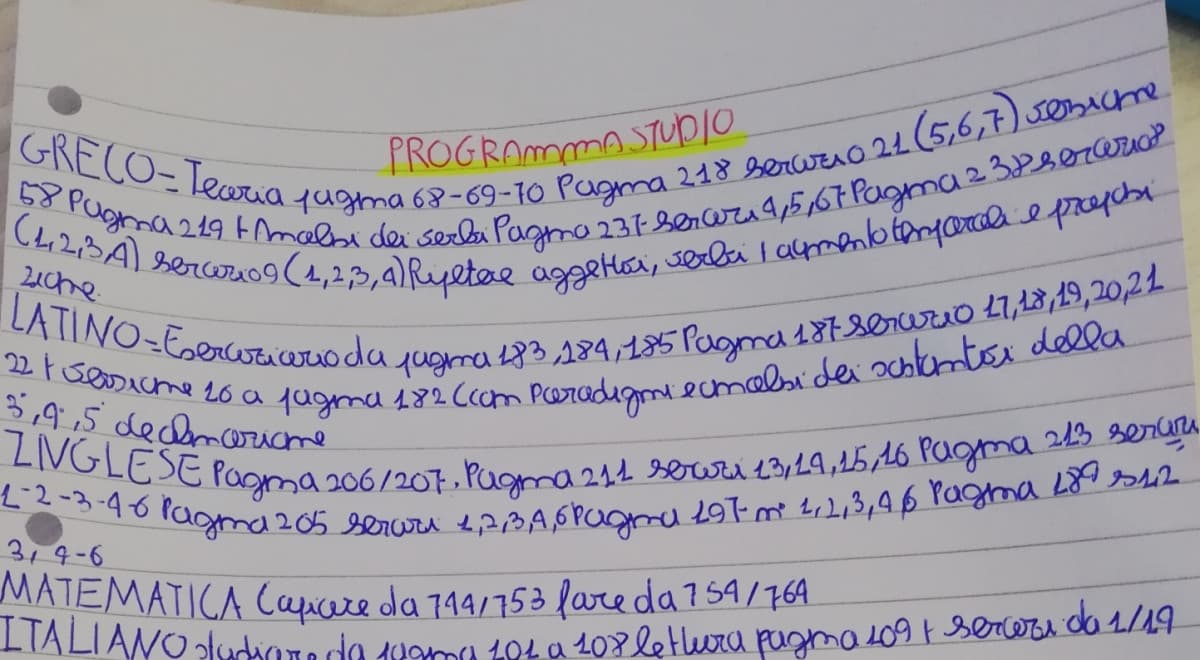 PROGRAMMA STUDIO
GRECO= Teoria pagina 68-69-70 Pagina 218 esercizio 21 (5,6,7) versione
58 Pagina 219 + Analisi dei verbi Pagina 237 esercizi 4,5,6 Pagina 238 esercizio 8
(1,2,3,4) esercizio 9 (1,2,3,4) Ripetere aggettivi, verbi,
LATINO= da pagina 183, 184, 185 Pagina 187 esercizio 17, 18, 19, 20, 21
22 + versione 26 a pagina 182 (con Paradigmi e analisi dei sostantivi della
3, 4, 5 declinazione
INGLESE Pagina 206/207. Pagina 211 esercizi 13, 14, 15, 16 Pagina 213 esercizi
1-2-3-4-6 Pagina 205 esercizi 1, 2, 3, 4, 6 Pagina 197 n° 1, 2, 3, 4 6 Pagina 189 1,2
3, 4-6
MATEMATICA Capire da 744/753 fare da 754/764
ITALIANO studiare da pagina 101 a 108 lettura pagina 109 + esercizi da 1/19